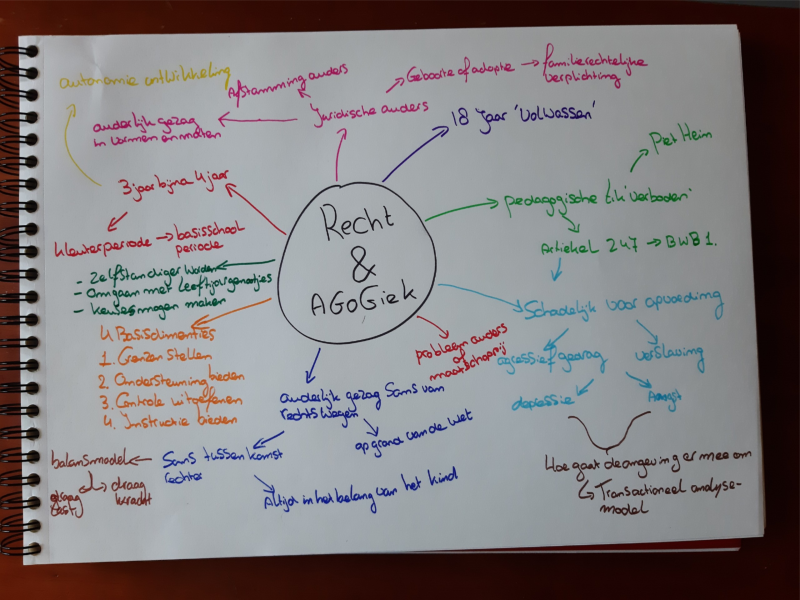 autonomie ontwikkeling
Afstamming ouders
Geboorte of adoptie → familierechtelijke
verplichting
ouderlijk gezag
in vormen en maten
Juridische ouders
18 jaar 'volwassen'
Piet Heim
3 jaar bijna 4 jaar
pedagogische tik 'verboden'
kleuterperiode → basisschool
periode
Artiekel 247 → BWB1.
Recht
&
AGOGiek
- Zelfstandiger worden
- Omgaan met leeftijdsgenootjes
- keuzes mogen maken
Schadelijk voor opvoeding
4 Basisdimenties
1. Grenzen Stellen
2. Ondersteuning bieden
3. Controle uitoefenen
4. Instructie bieden
probleem ouders
of
maatschappij
agressief gedrag
verslaving
depressie
Angst
ouderlijk gezag Soms van
rechtswegen
op grond van de wet
balansmodel
draag
kracht
Soms tussenkomst
rechter
Altijd in het belang van het kind
Hoe gaat de omgeving er mee om
↳ Transactioneel analyse-
model